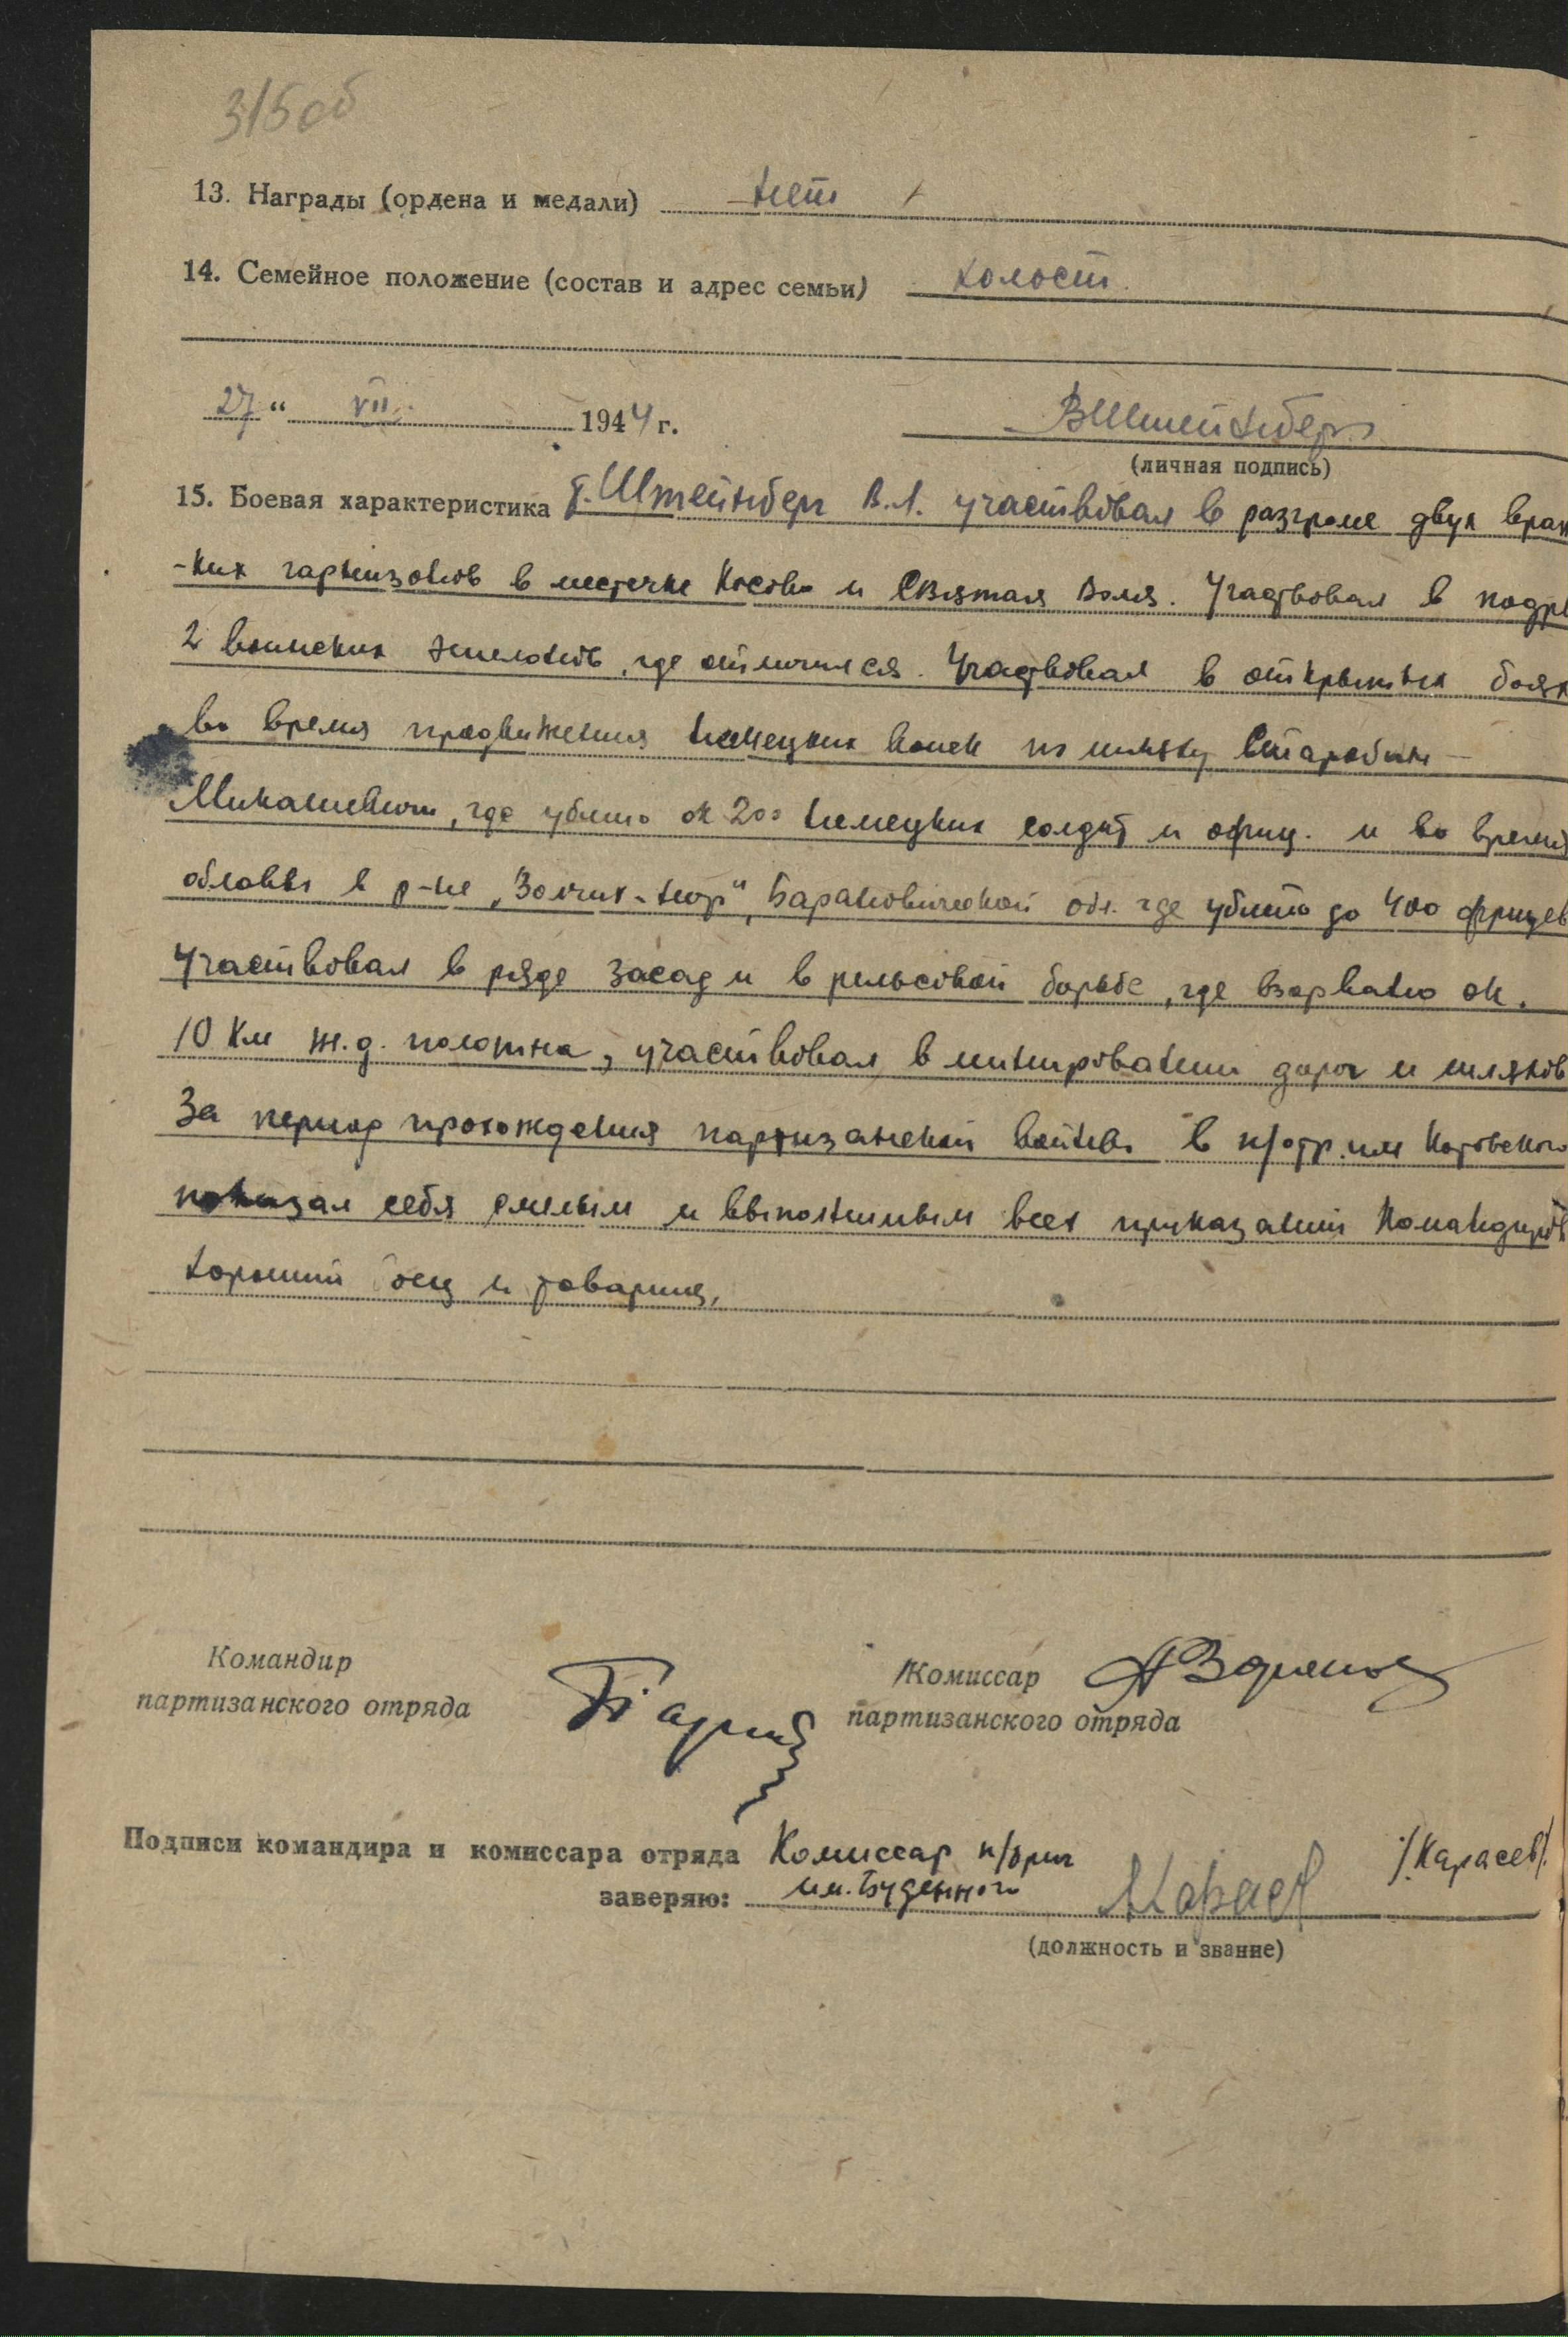 315об
13. Награды (ордена и медали) нет
14. Семейное положение (состав и адрес семьи) холост.
27 " VII. 1944 г.
ВШтейнберг
(личная подпись)
15. Боевая характеристика т. Штейнберг В.Л. участвовал в разгроме двух враж
-ких гарнизонов в местечке Косово и Святая Воля. Участвовал в подры
2 воинских эшелонов, где отличился. Участвовал в открытых боях
во время продвижения немецких войск по шляху Старобин –
Микашевичи, где убито ок 200 немецких солдат и офиц. и во время
облавы в р-не Барановической обл. где убито до 400 фрицев
Участвовал в ряде засад и в рельсовой борьбе, где взорвано ок.
10 км ж.д. полотна, участвовал в минировании дорог и шляхов
За период прохождения партизанской войны в п/отр. им Котовского
показал себя смелым и выполнимым всех приказаний командиров
хороший боец и товарищ,
Командир
партизанского отряда
Комиссар
партизанского отряда
Подписи командира и комиссара отряда Комиссар п/бриг
заверяю: им. Буденного /Карасев/.
(должность и звание)